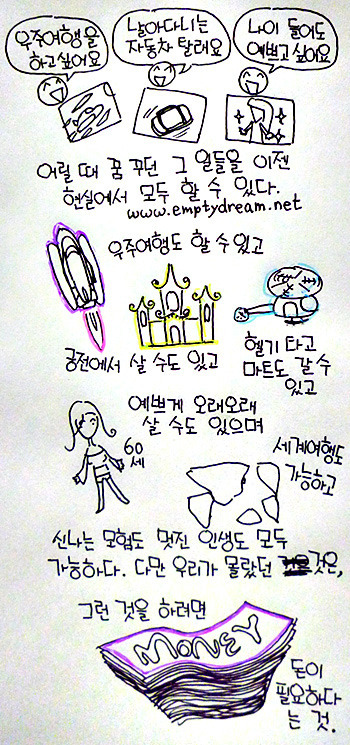 우주여행을
하고싶어요
날아다니는
자동차 탈래요
나이 들어도
예쁘고 싶어요
어릴 때 꿈 꾸던 그 일들을 이젠
현실에서 모두 할 수 있다.
www.emptydream.net
우주여행도 할 수 있고
궁전에서 살 수도 있고
헬기 타고
마트도 갈 수
있고
예쁘게 오래오래
살 수도 있으며
60
세
세계여행도
가능하고
신나는 모험도 멋진 인생도 모두
가능하다. 다만 우리가 몰랐던 것은,
그런 것을 하려면
MONEY
돈이
필요하다
는 것.